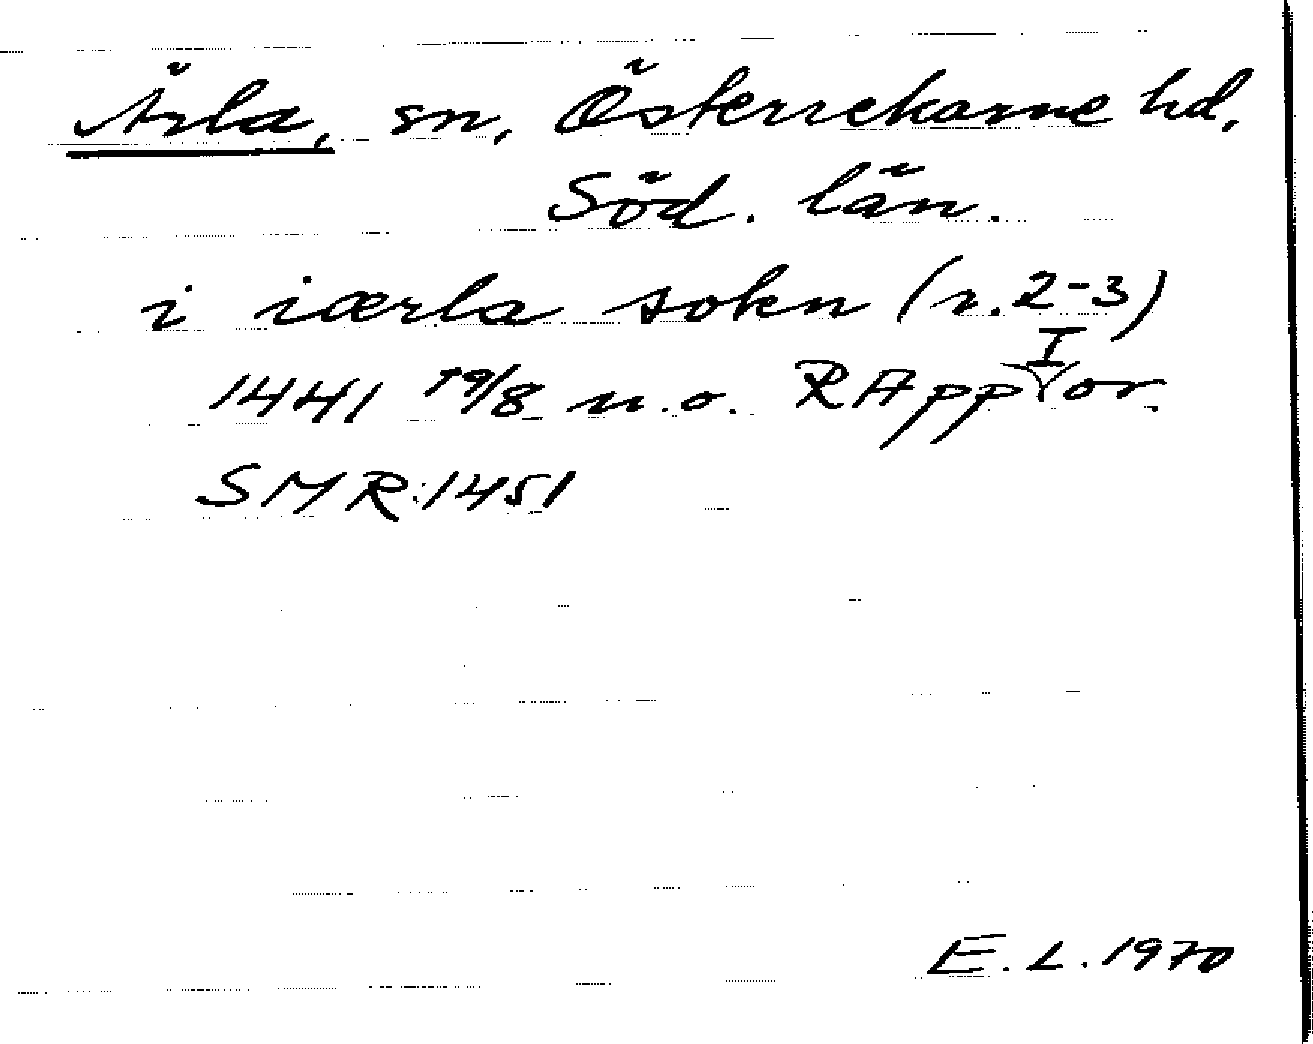 Ärla, sn, Österrekarne hd,
Söd. län.
i iærla sokn (r. 2-3)
1441 19/8 n.o. RApp I or.
SMR:1451
E.L. 1970